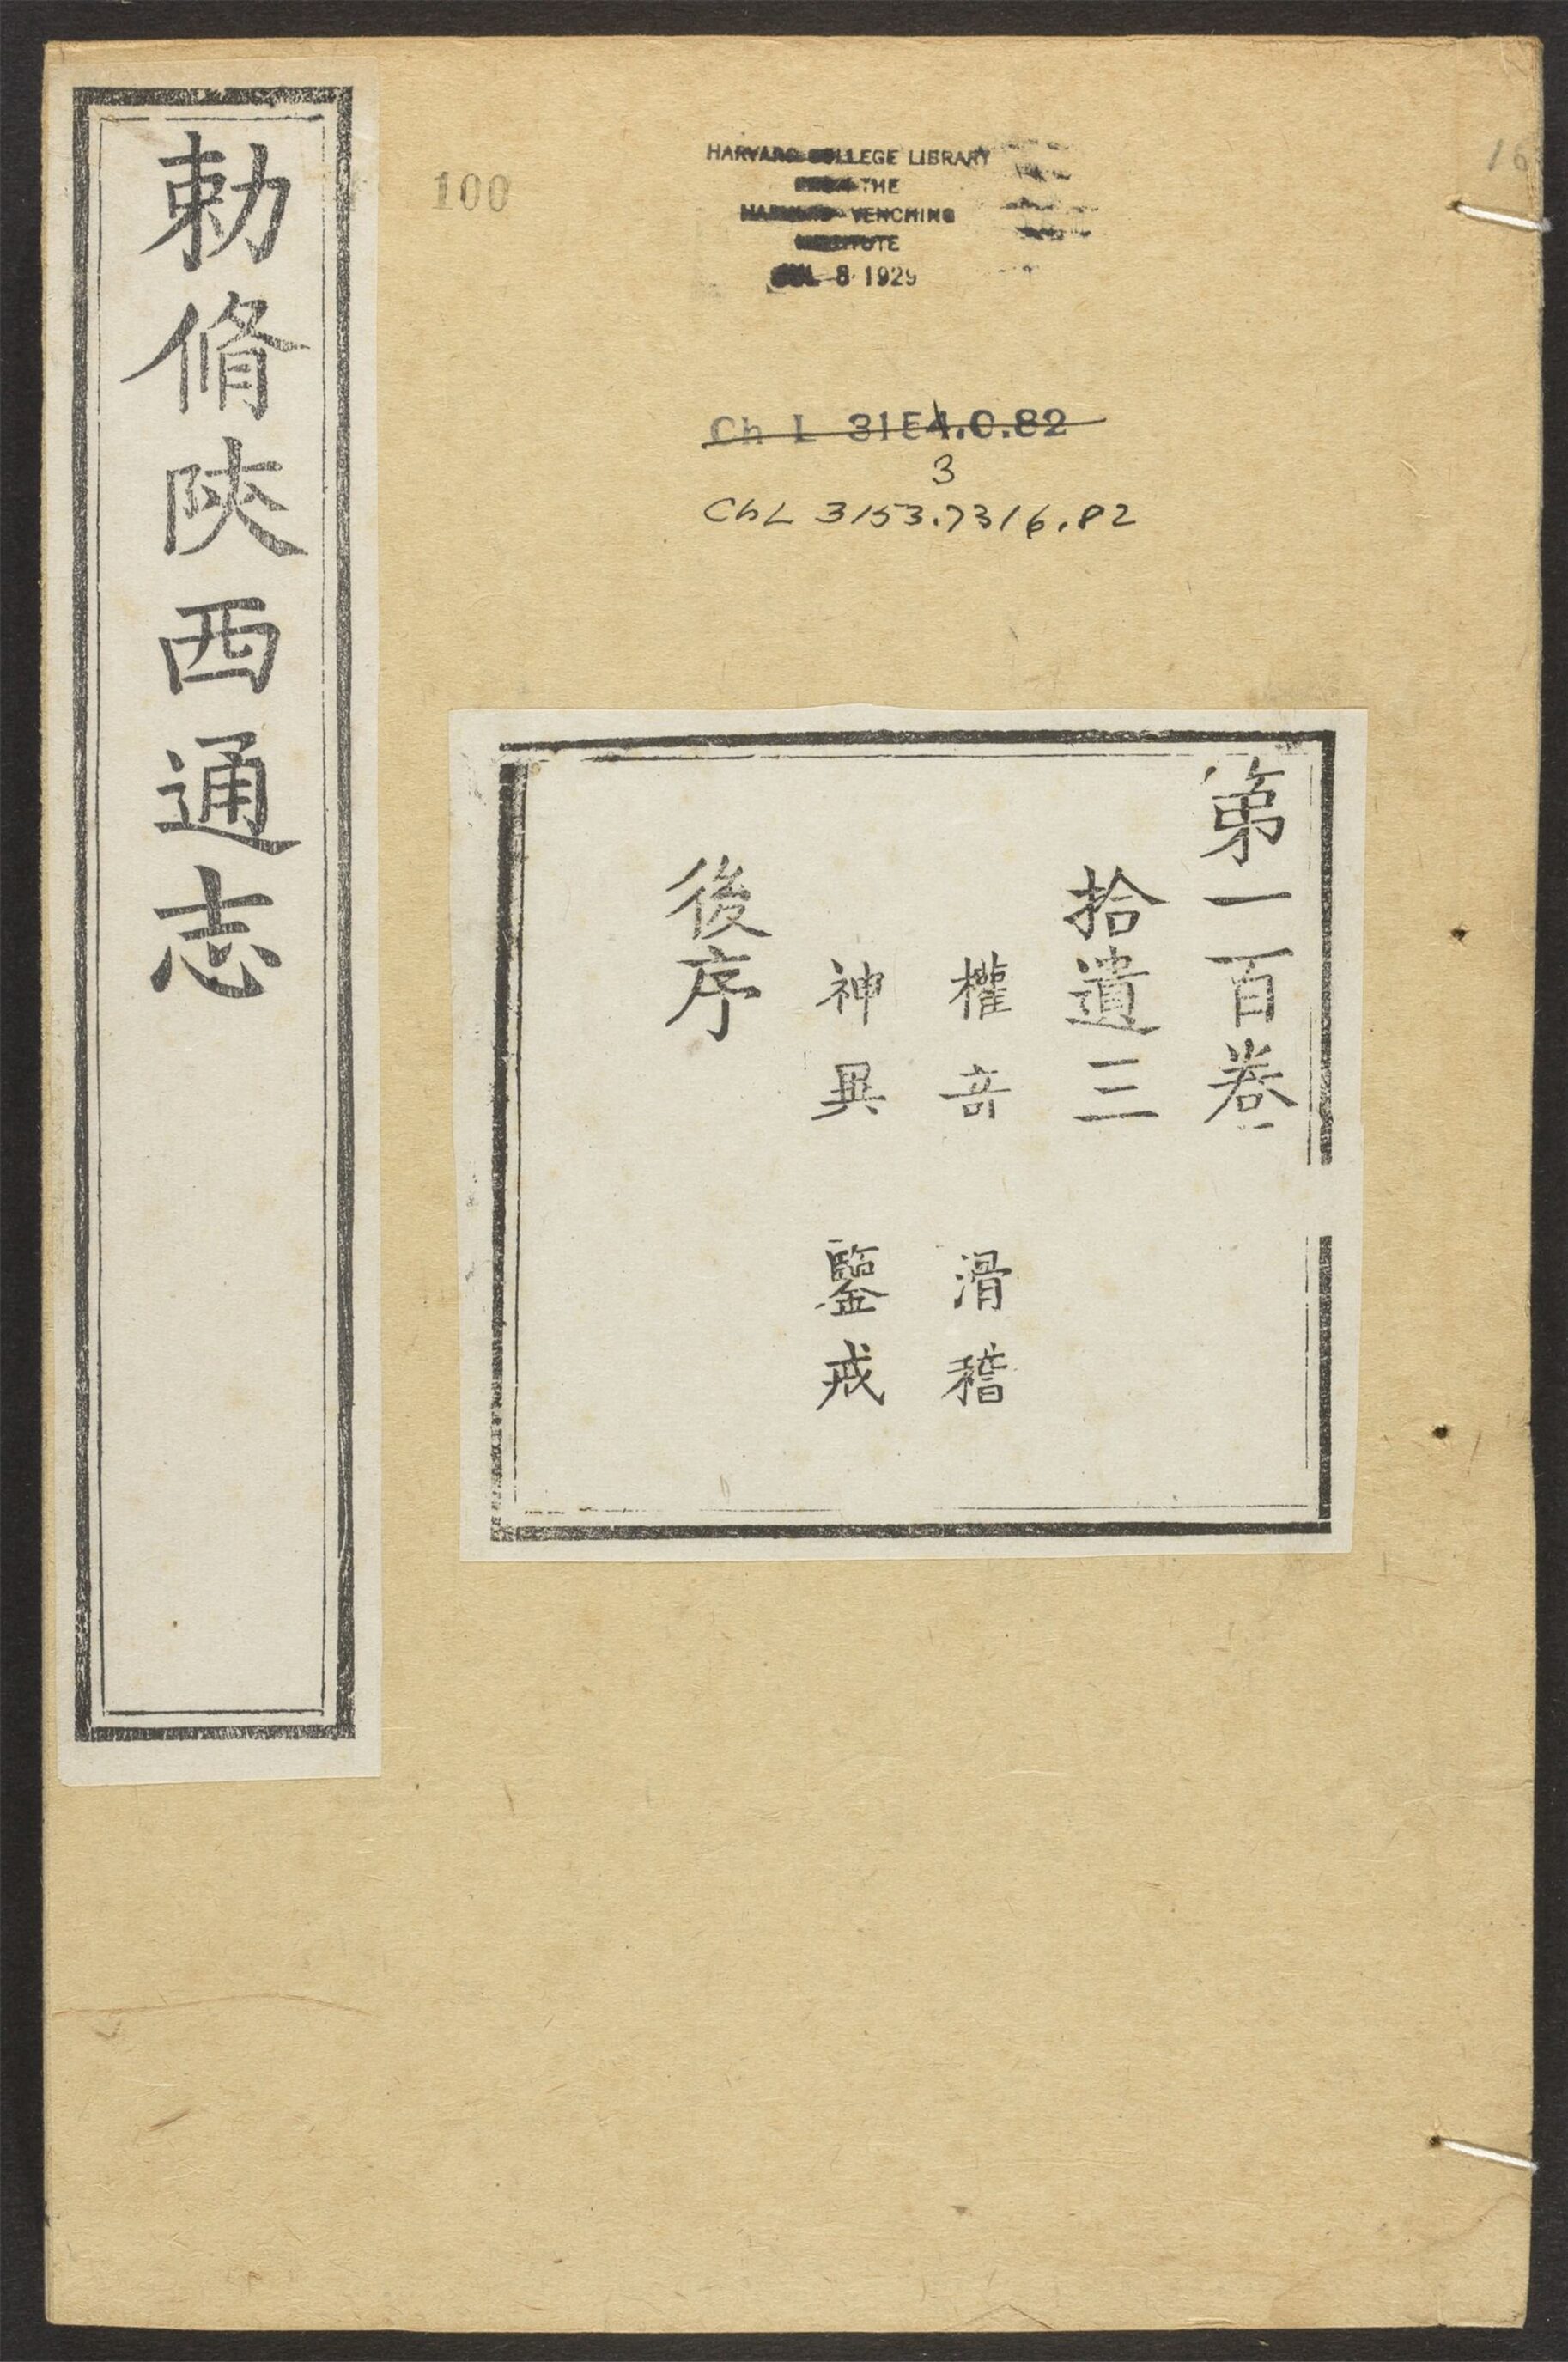 勅脩陝西通志
100
HARVARD COLLEGE LIBRARY
FROM THE
HARVARD-YENCHING
INSTITUTE
JUL 8 1929
Ch L 3154.0.82
3
ChL 3153.7316.82
16
第一百卷
拾遺三
權竒 滑稽
神異 鑒戒
後序